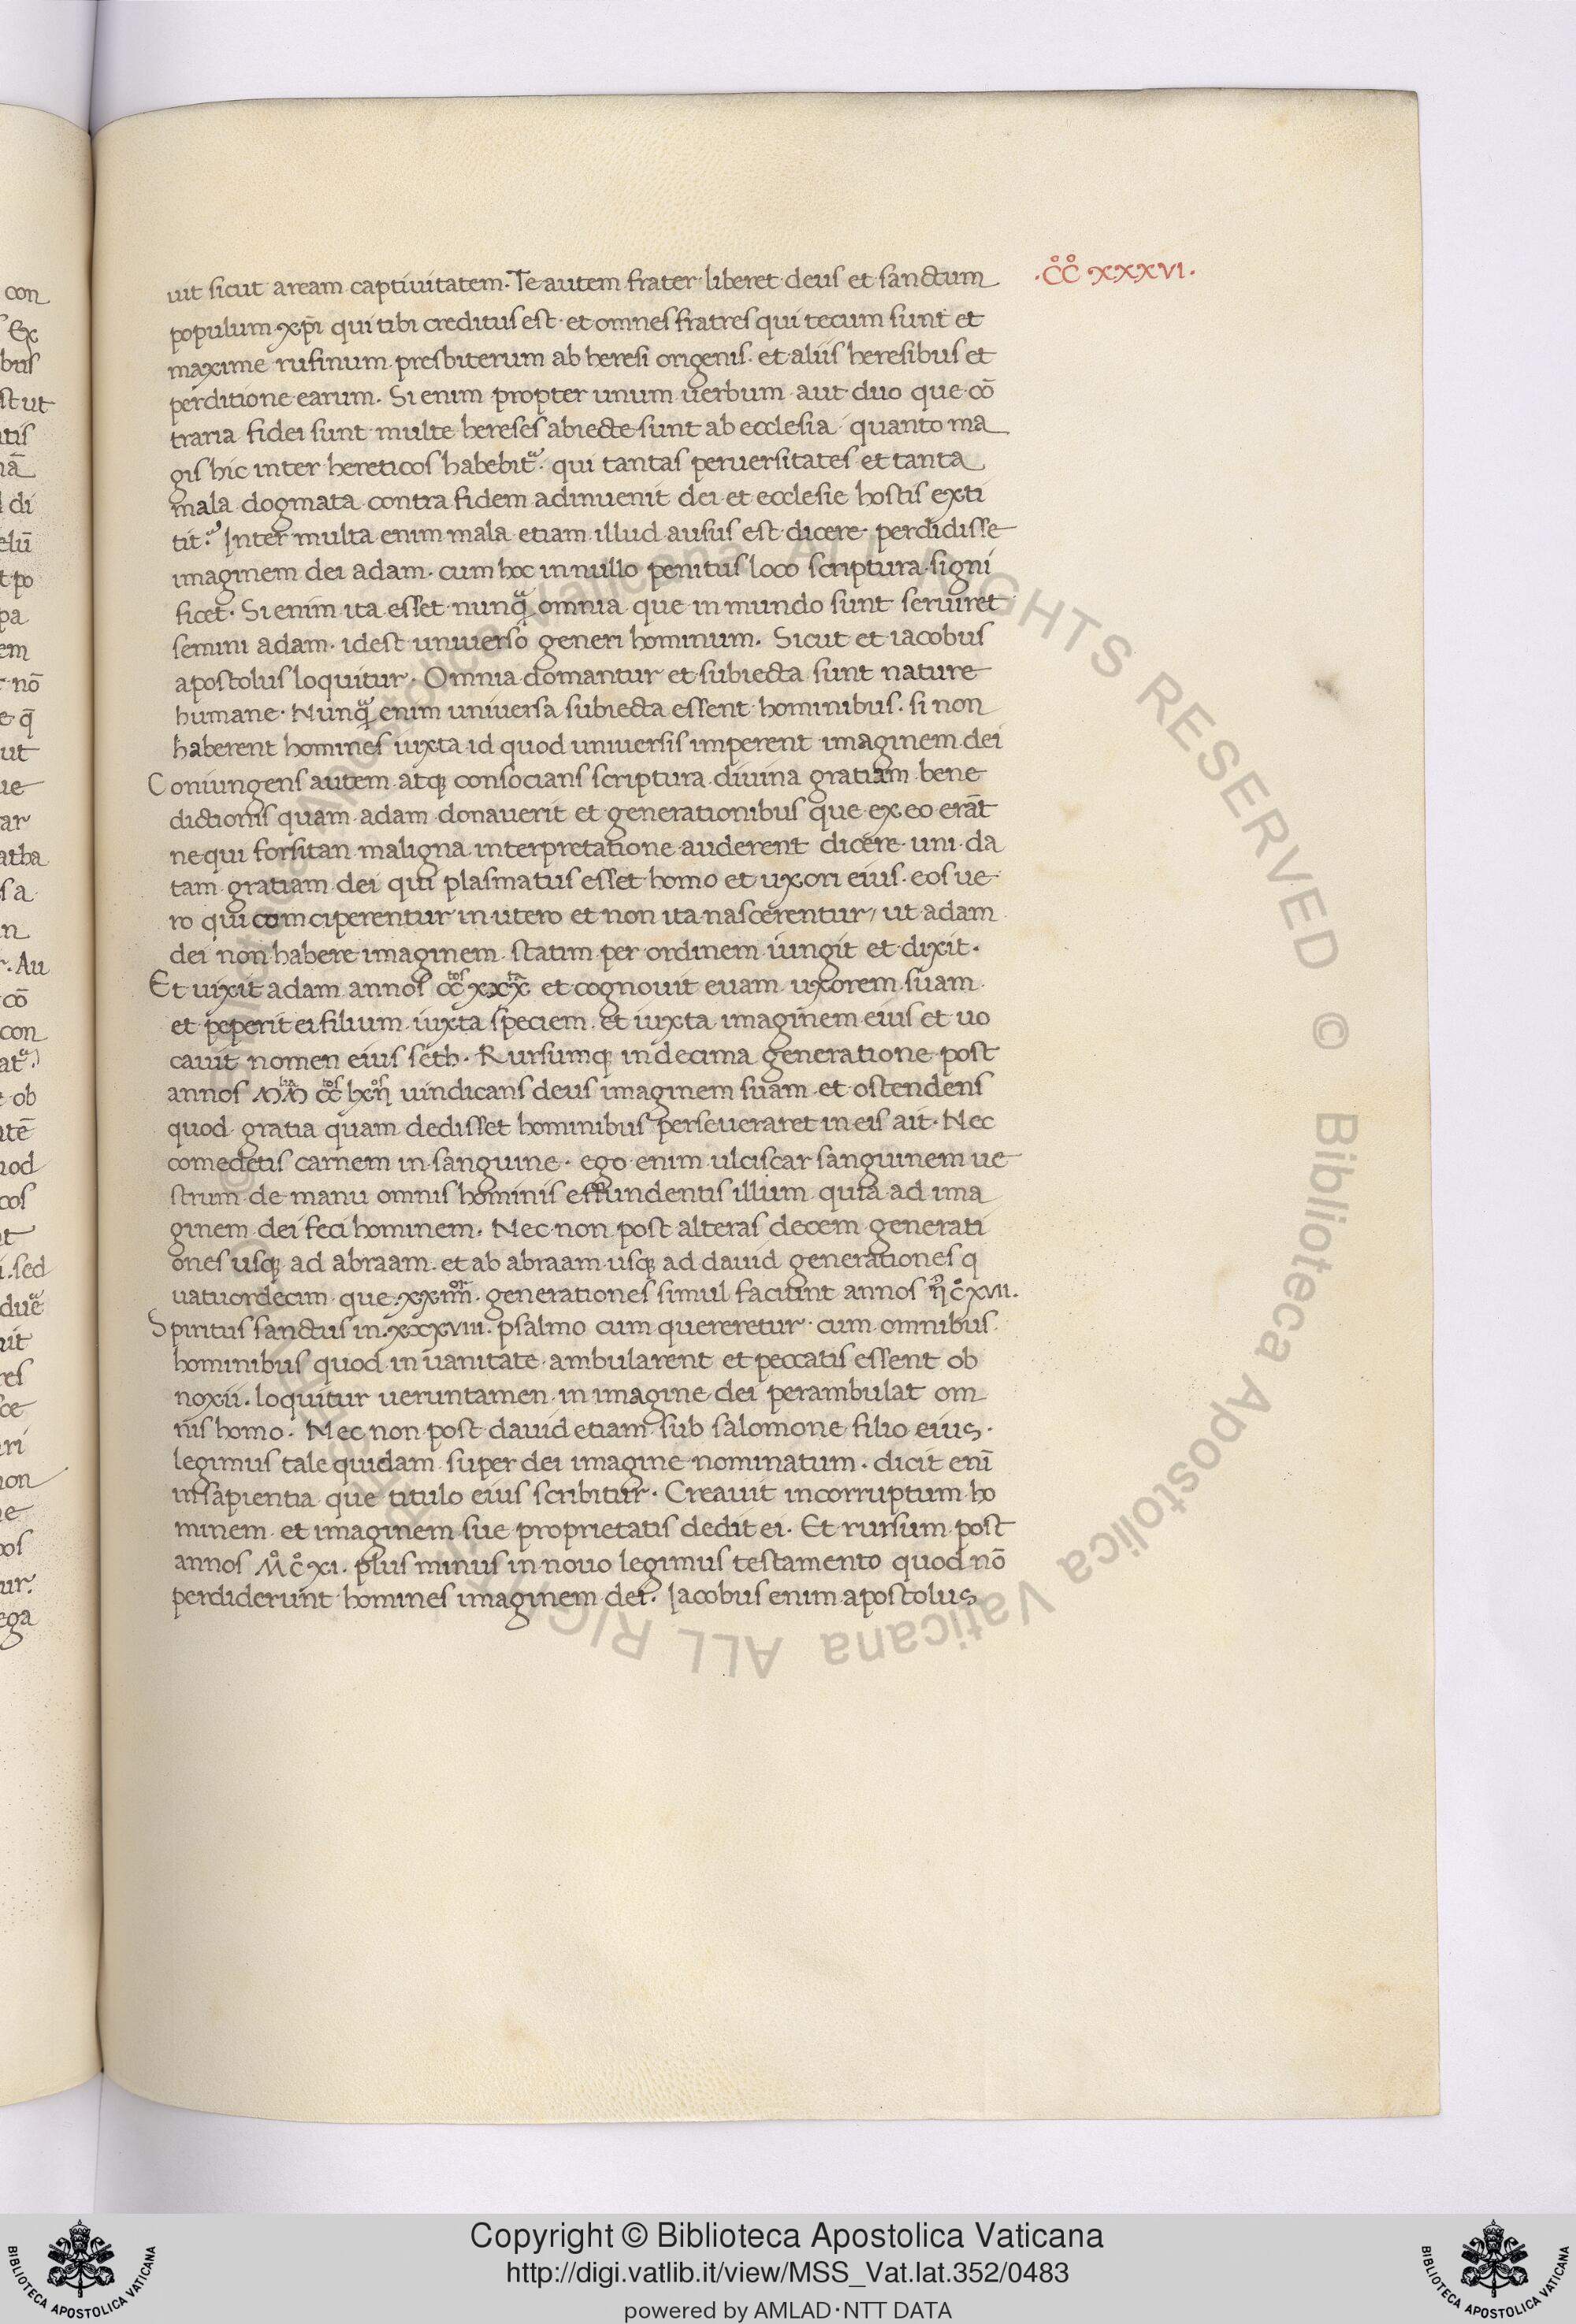 uit sicut aream captiuitatem. Te autem frater liberet deus et sanctum
·CC XXXVI·
populum xp̄i qui tibi creditus est· et omnes fratres qui tecum sunt et
maxime rufinum presbiterum ab heresi origenis. et aliis heresibus et
perditione earum. Si enim propter unum uerbum aut duo que cō
traria fidei sunt multe hereses abiecte sunt ab ecclesia quanto ma
gis hic inter hereticos habebit᷑. qui tantas peruersitates et tanta
mala dogmata contra fidem adinuenit dei et ecclesie hostis exti
tit? Inter multa enim mala etiam illud ausus est dicere· perdidisse
imaginem dei adam. cum hoc in nullo penitus loco scriptura signi
ficet. Si enim ita esset nunq̃ omnia que in mundo sunt seruiret
semini adam. idest uniuerso generi hominum. Sicut et iacobus
apostolus loquitur. Omnia domantur et subiecta sunt nature
humane. Nunq̃ enim uniuersa subiecta essent hominibus. si non
haberent homines iuxta id quod uniuersis imperent imaginem dei
Coniungens autem atq; consocians scriptura diuina gratiam bene
dictionis quam adam donauerit et generationibus que ex eo erāt
ne qui forsitan maligna interpretatione auderent dicere uni da
tam gratiam dei qui plasmatus esset homo et uxori eius. eos ue
ro qui com ciperentur in utero et non ita nascerentur/ ut adam
dei non habere imaginem statim per ordinem iungit et dixit.
Et uixit adam annos CC^tos XXX^ta et cognouit euam uxorem suam
et peperit ei filium iuxta speciem. et iuxta imaginem eius et uo
cauit nomen eius seth. Rursumq; in decima generatione post
annos uindicans deus imaginem suam et ostendens
quod gratia quam dedisset hominibus perseueraret in eis ait. Nec
comedetis carnem in sanguine. ego enim ulciscar sanguinem ue
strum de manu omnis hominis effundentis illum quia ad ima
ginem dei feci hominem. Nec non post alteras decem generati
ones usq; ad abraam. et ab abraam usq; ad dauid generationes q
uatuordecim que generationes simul faciunt annos
Spiritus sanctus in .xxxviii. psalmo cum quereretur· cum omnibus
hominibus quod in uanitate ambularent et peccatis essent ob
noxii. loquitur ueruntamen in imagine dei perambulat om
nis homo. Nec non post dauid etiam sub salomone filio eius.
legimus tale quidam super dei imagine nominatum. dicit enī
in sapientia que titulo eius scribitur. Creauit incorruptum ho
minem et imaginem sue proprietatis dedit ei. Et rursum post
annos M̊C̊XI. plus minus in nouo legimus testamento quod nō
perdiderunt homines imaginem dei. Iacobus enim apostolus
Copyright © Biblioteca Apostolica Vaticana
http://digi.vatlib.it/view/MSS_Vat.lat.352/0483
powered by AMLAD·NTT DATA